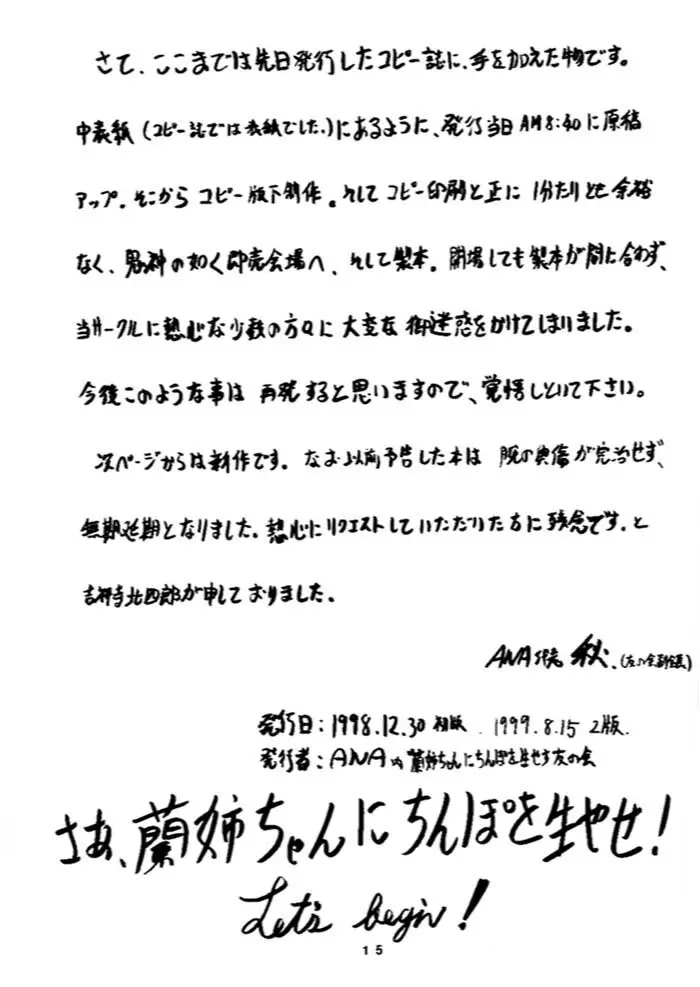 さて、ここまでは先日発行したコピー誌に、手を加えた物です。
中表紙(コピー誌では表紙でした。)にあるように、発行当日AM8:40に原稿
アップ。そこからコピー版下制作。そしてコピー印刷と正に1分たりとも余裕
なく、の如く即売会場へ、そして製本。開場しても製本が間に合わず、
当サークルに熱心な少数の方々に大変な御迷惑をかけてしまいました。
今後このような事は再発すると思いますので、覚悟しといて下さい。
次ページからは新作です。なお以前予告した本は腕のが完治せず、
無期延期となりました。熱心にリクエストしていただいた方に残念です。と
吉祥寺北四郎が申しておりました。
ANA 秋.
発行日:1998.12.30 初版. 1999.8.15 2版.
発行者:ANA内 蘭姉ちゃんにちんぽを生やす友の会
さあ、蘭姉ちゃんにちんぽを生やせ!
Let's begin!
15